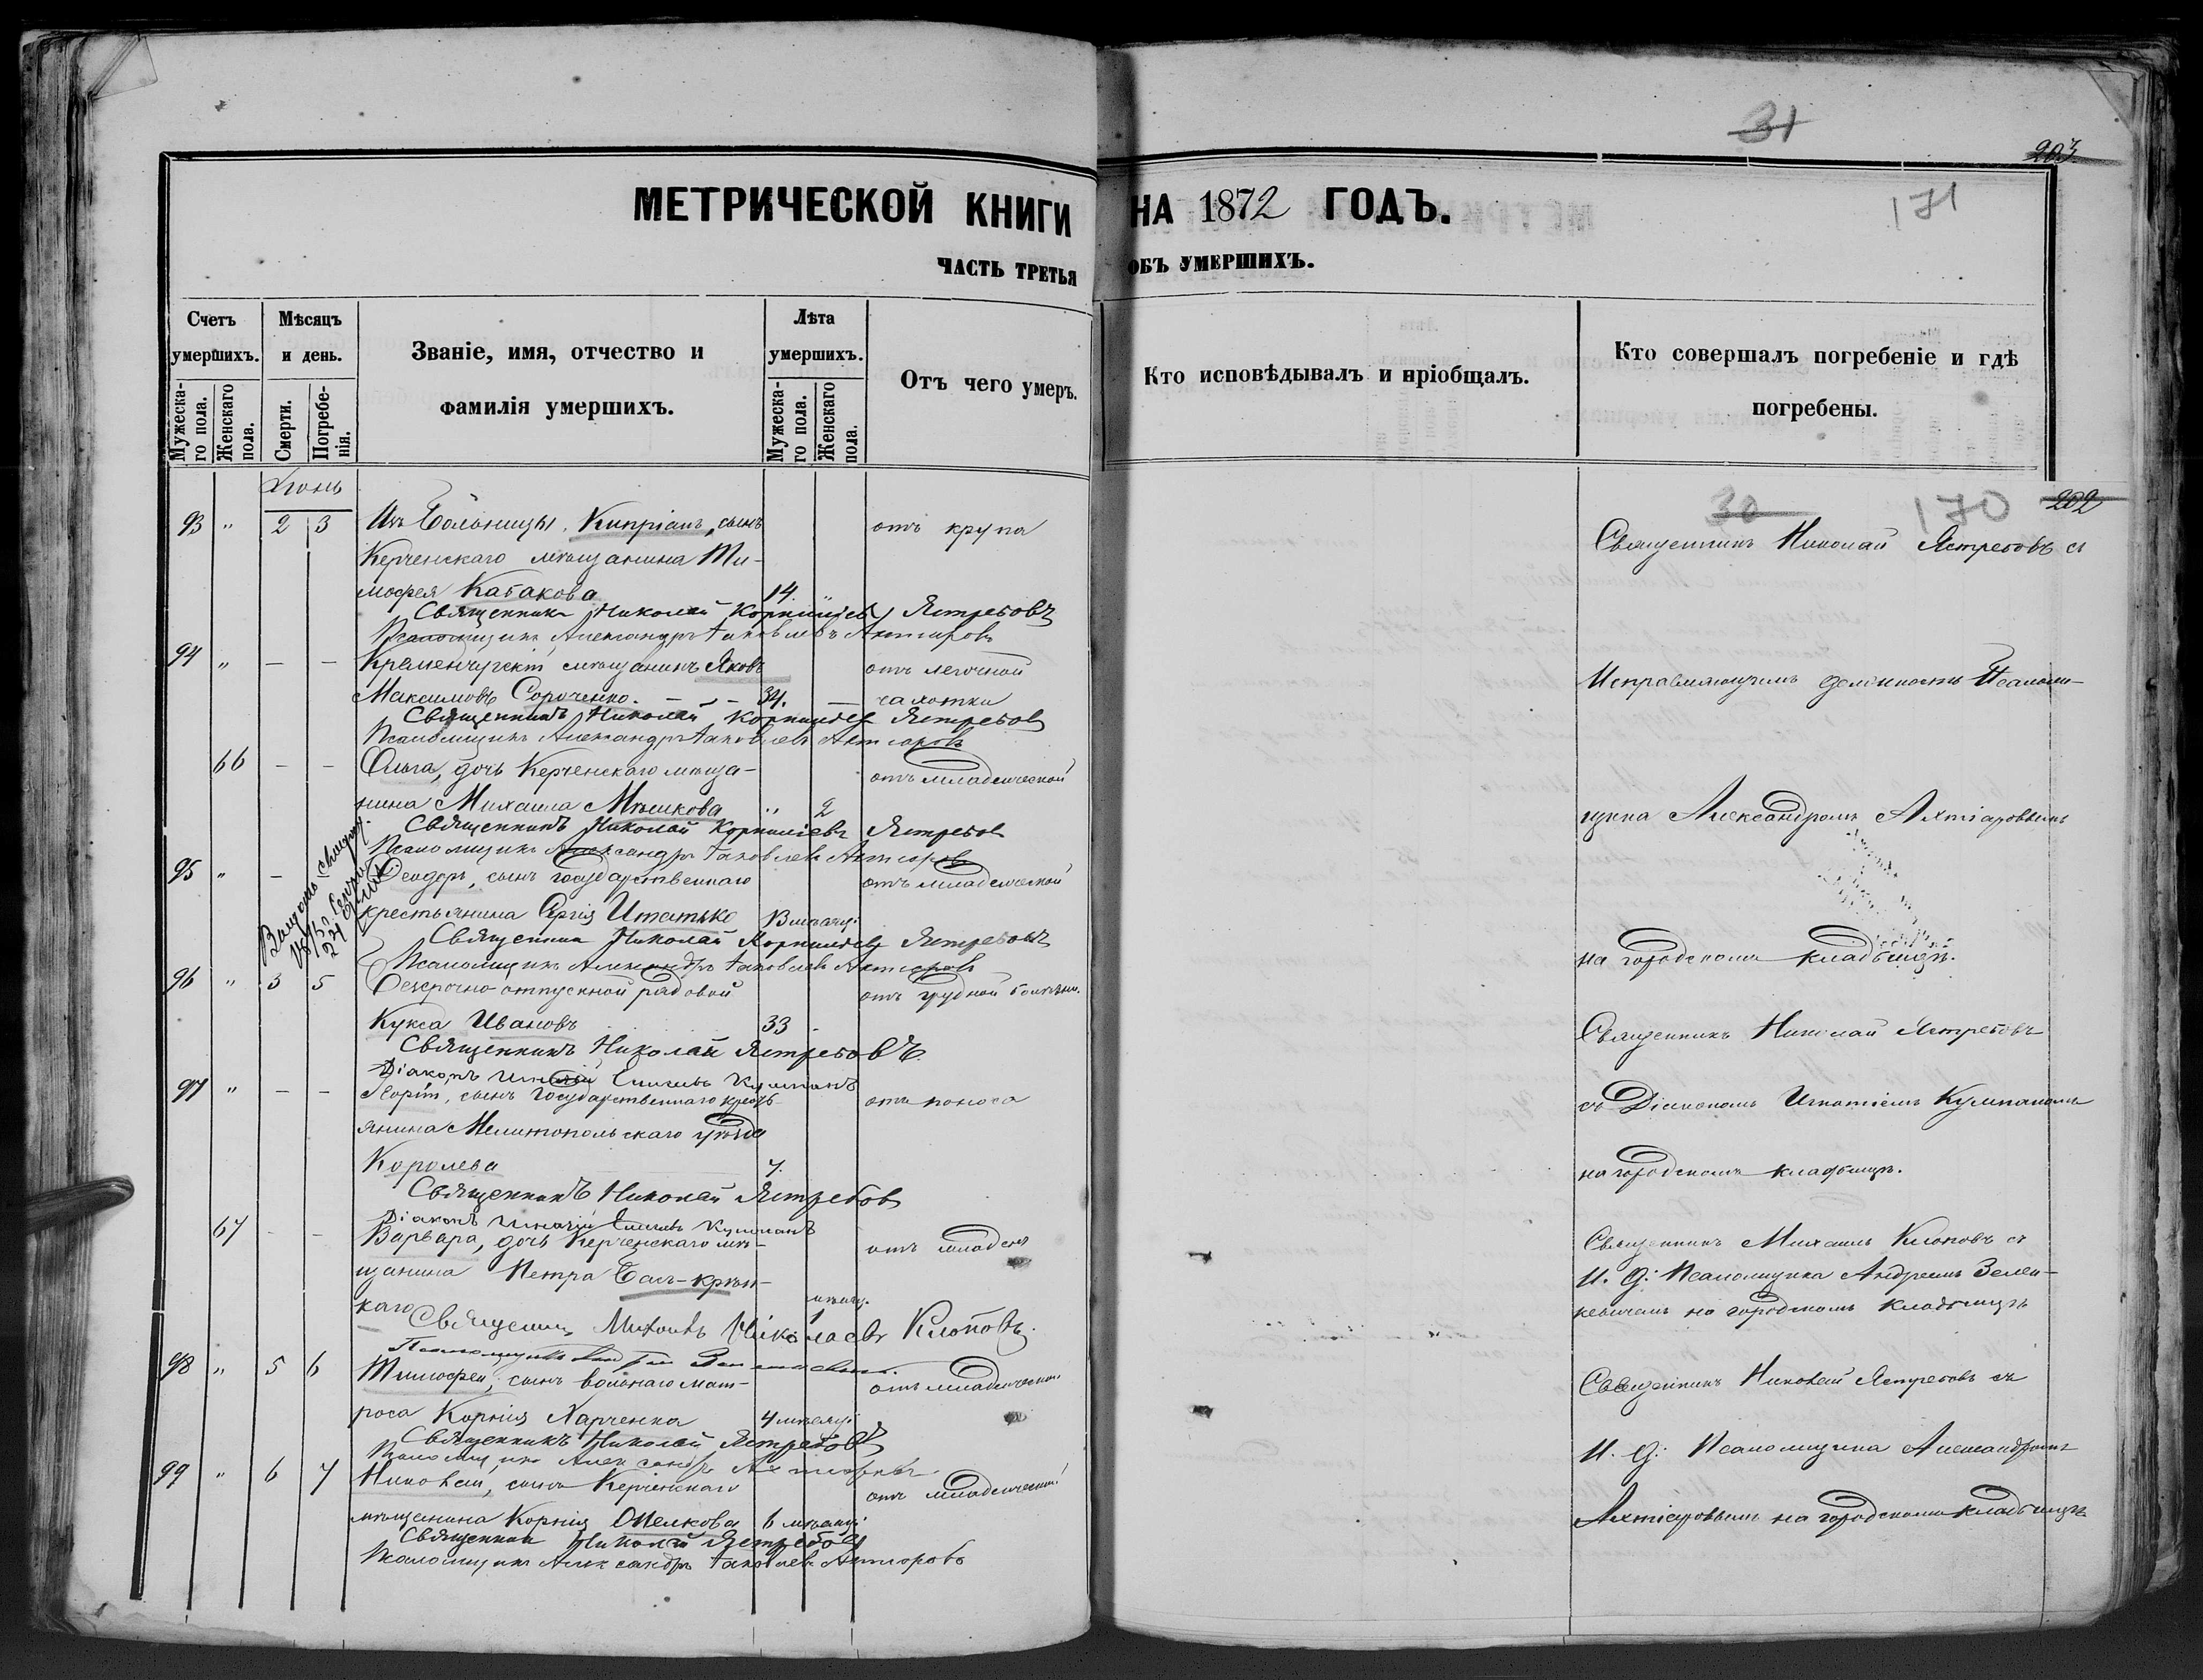 31
203
МЕТРИЧЕСКОЙ КНИГИ НА 1872 ГОДЪ.
171
ЧАСТЬ ТРЕТЬЯ ОБЪ УМЕРШИХЪ.
Счетъ умершихъ.
Мужеска-го пола.
Женскаго пола.
Мѣсяцъ и день.
Смерти.
Погребе-нія.
Званіе, имя, отчество и
фамилія умершихъ.
Лѣта умершихъ.
Мужеска-го пола.
Женскаго пола.
Отъ чего умеръ.
Кто исповѣдывалъ и пріобщалъ.
Кто совершалъ погребеніе и гдѣ
погребены.
Іюнь
30 170 202
93 " 2 3 Изъ Больницы. Кипріанъ, сынъ отъ крупа
Керченскаго мѣщанина Ти-
мофея Кабакова 14.
Священникъ Николай Корниліевъ Ястребовъ
Псаломщикъ Александръ Яковлевъ Ахтіаровъ
94 " — — Кременчугскій мѣщанинъ Яковъ отъ легочной
Максимовъ Сороченко. — 34. — чахотки
Священникъ Николай Корниліев Ястребов
Псаломщикъ Александръ Яковлевъ Ахтіаровъ
66 — — Ольга, дочь Керченскаго мѣща- отъ младенческой
нина Михаила Мѣшкова " 2
Священникъ Николай Корниліевъ Ястребов
Псаломщикъ Александръ Яковлевъ Ахтіаровъ
95 " — — Ѳеодоръ, сынъ государственнаго отъ младенческой
крестьянина Сергія Игнатько 3 мѣсяц.
Священник Николай Корниліевъ Ястребовъ
Псаломщикъ Александръ Яковлевъ Ахтіаровъ
96 " 3 5 Безсрочно-отпускной рядовой отъ грудной болѣзни.
Кукса Ивановъ 33
Священникъ Николай Ястребовъ
Діаконъ Игнатій Кулпанъ
97 " — — Георгій, сынъ Государственнаго кресть- отъ поноса
янина Мелитопольскаго уѣзда
Королева 7.
Священникъ Николай Ястребов
Діаконъ Игнатій Кулпанъ
67 - - Варвара, дочь Керченскаго мѣ- отъ младен
щанина Петра
каго мѣсяц. 1
Священник Михаилъ Николаевъ Клоповъ.
98 " 5 6 Тимофей, сынъ вольнаго мат- отъ младенческой
роса Корнія Харченка 4 мѣсяц.
Священникъ Николай Ястребовъ
Псаломщикъ Александръ Ахтіаровъ
99 " 6 7 Николай, сынъ Керченскаго отъ младенческой
мѣщанина Корнія 6 мѣсяц.
Священник Николай Ястребовъ
Псаломщикъ Александръ Яковлевъ Ахтіаровъ
Священникъ Николай Ястребовъ съ
Исправляющимъ должность Псалом-
щика Александромъ Ахтіаровымъ
на городскомъ кладбищѣ.
Священникъ Николай Ястребовъ
съ Діакономъ Игнатіемъ Кулпаномъ
на городскомъ кладбищѣ.
Священникъ Михаилъ Клоповъ съ
И. Д: Псаломщика Андреемъ Зелен-
кевичемъ на городскомъ кладбищѣ
Священникъ Николай Ястребовъ съ
И. Д: Псаломщика Александромъ
Ахтіаровымъ на городскомъ кладбищѣ